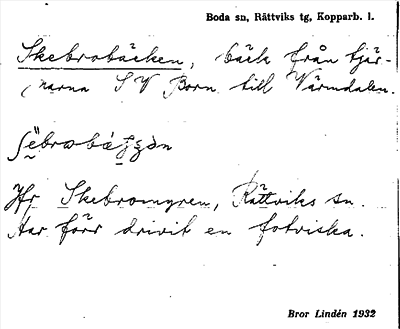 Boda sn, Rättviks tg, Kopparb. l.
Skebrobäcken, bäck från tjär-
narna S V Born till Värmdalen.
Jfr Skebromyren, Rättviks sn.
Har förr drivit en fotviska.
Bror Lindén 1932